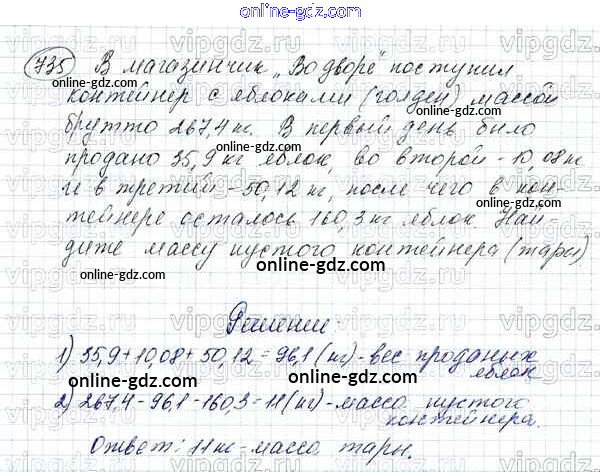 online-gdz.com
735 В магазинчик „Во дворе" поступил
контейнер с яблоками (голден) массой
брутто 267,4 кг. В первый день было
продано 35,9 кг яблок, во второй - 10,08 кг
и в третий - 50,12 кг, после чего в кон-
тейнере осталось 160,3 кг яблок. Най-
дите массу пустого контейнера (тары)
online-gdz.com
Решение:
1) 35,9 + 10,08 + 50,12 = 96,1 (кг) - вес проданых
яблок
2) 267,4 - 96,1 - 160,3 = 11 (кг) - масса пустого
контейнера.
Ответ: 11 кг - масса тары.
online-gdz.com